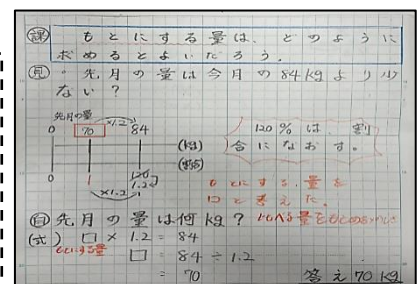 課 もとにする量は、どのように
求めるとよいだろう。
見 ・先月の量は今月の84kgより少
ない？
先月の量
0 70 ×1.2 84
(kg)
(割合)
0 1 1.2
×1.2
120%は、割
合になおす。
もとにする量を
口と考えた。
自 先月の量は何kg？
(式) □ × 1.2 = 84
もとにする量
□ = 84 ÷ 1.2
= 70
答え 70kg